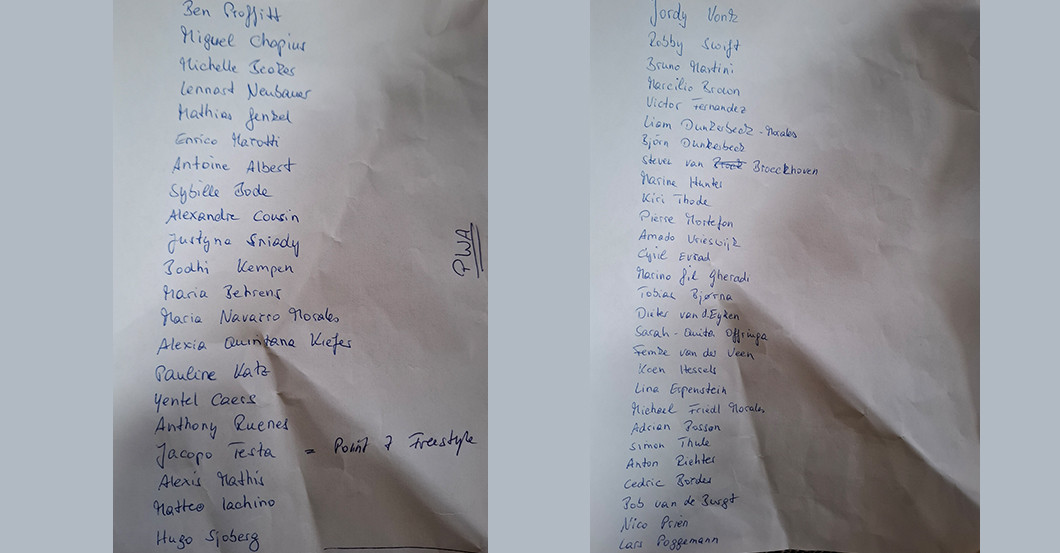 Ben Proffitt
Miguel Chapius
Michelle Becker
Lennart Neubauer
Mathias Genkel
Enrico Marotti
Antoine Albert
Sybille Bode
Alexandre Cousin
Justyna Sniady
Bodhi Kempen
Maria Behrens
PWA
Maria Navarro Morales
Alexia Quintana Kiefer
Pauline Katz
Yentel Caers
Anthony Ruenes
Jacopo Testa = Point 7 Freestyle
Alexis Mathis
Matteo Iachino
Hugo Sjoberg
Jordy Vonk
Robby Swift
Bruno Martini
Marcilio Brown
Victor Fernandez
Liam Dunkerbeck - Morales
Björn Dunkerbeck
Steven van Broeckhoven
Marine Hunter
Kiri Thode
Pierre Mortefon
Amado Vrieswijk
Cyril Evrad
Marino Gil Gheradi
Tobias Bjørna
Dieter van d. Eyken
Sarah - Quita Offringa
Femke van der Veen
Koen Hessels
Lina Erpenstein
Michael Friedl Morales
Adrian Bosson
Simon Thule
Anton Richter
Cedric Bordes
Bob van de Burgt
Nico Prien
Lars Poggemann